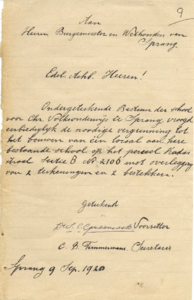 9
Aan
Heeren Burgemeester en Wethouders van
Sprang.
Edel Achtb. Heeren!
Ondergeteekende Bestuur der school
voor Chr. Volksonderwijs te Sprang vraagt
eerbiedig de noodige vergunning tot
het bouwen van een lokaal aan hare
bestaande school op het perceel Kadas-
traal Sectie B No 2106 met overlegging
van 2 teekeningen en 2 bestekken.
Voorzitter
C. B. Timmermans Secretaris
Sprang 9 Sep. 1920